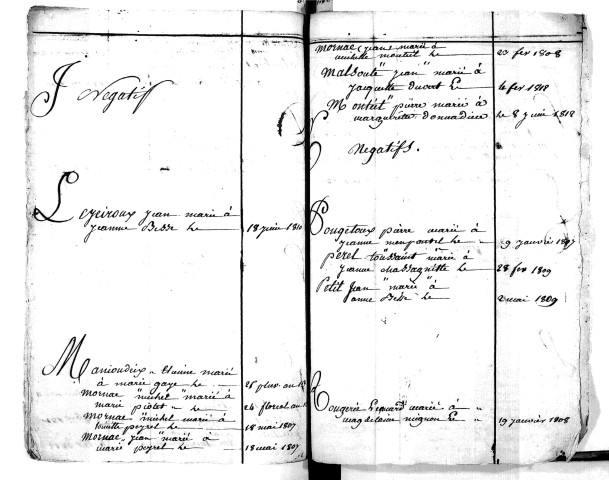 J
Negatifs
Lezeiroux jean marié à
jeanne Besse le 18 juin 1810
Manioudeix Etienne marié
à marie gaye le 25 pluv. an
mornac michel marié à
marie piotet le 24 floreal an
mornac michel marié à
peyrel le 18 mai 1807
mornac jean marié à
marie peyrel le 18 mai 1807
mornac jean marié à
monteil le 23 fev 1808
Malsoute jean marié à
jacquette le 4 fev 1818
Monteil pierre marié à
marguerite donnadieu le 8 juin 1818
Negatifs.
Pougetoux pierre marié à
jeanne le 9 janvier 1807
perel toussaint marié à
jeanne Massagnette le 28 fev 1809
Petit jean marié à
anne Besse le 2 mai 1809
Rougerie Leonard marié à
magdelaine mignon le 19 janvier 1808